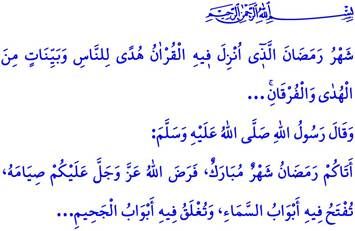 بِسْمِ اللهِ الرَّحْمٰنِ الرَّحِيمِ
شَهْرُ رَمَضَانَ الَّذٖٓي اُنْزِلَ فٖيهِ الْقُرْاٰنُ هُدًى لِلنَّاسِ وَبَيِّنَاتٍ مِنَ
الْهُدٰى وَالْفُرْقَانِۚ...
وَقَالَ رَسُولُ اللهِ صَلَّى اللهُ عَلَيْهِ وَسَلَّمَ:
أَتَاكُمْ رَمَضَانُ شَهْرٌ مُبَارَكٌ، فَرَضَ اللهُ عَزَّ وَجَلَّ عَلَيْكُمْ صِيَامَهُ،
تُفْتَحُ فِيهِ أَبْوَابُ السَّمَاءِ، وَتُغْلَقُ فِيهِ أَبْوَابُ الْجَحِيمِ...